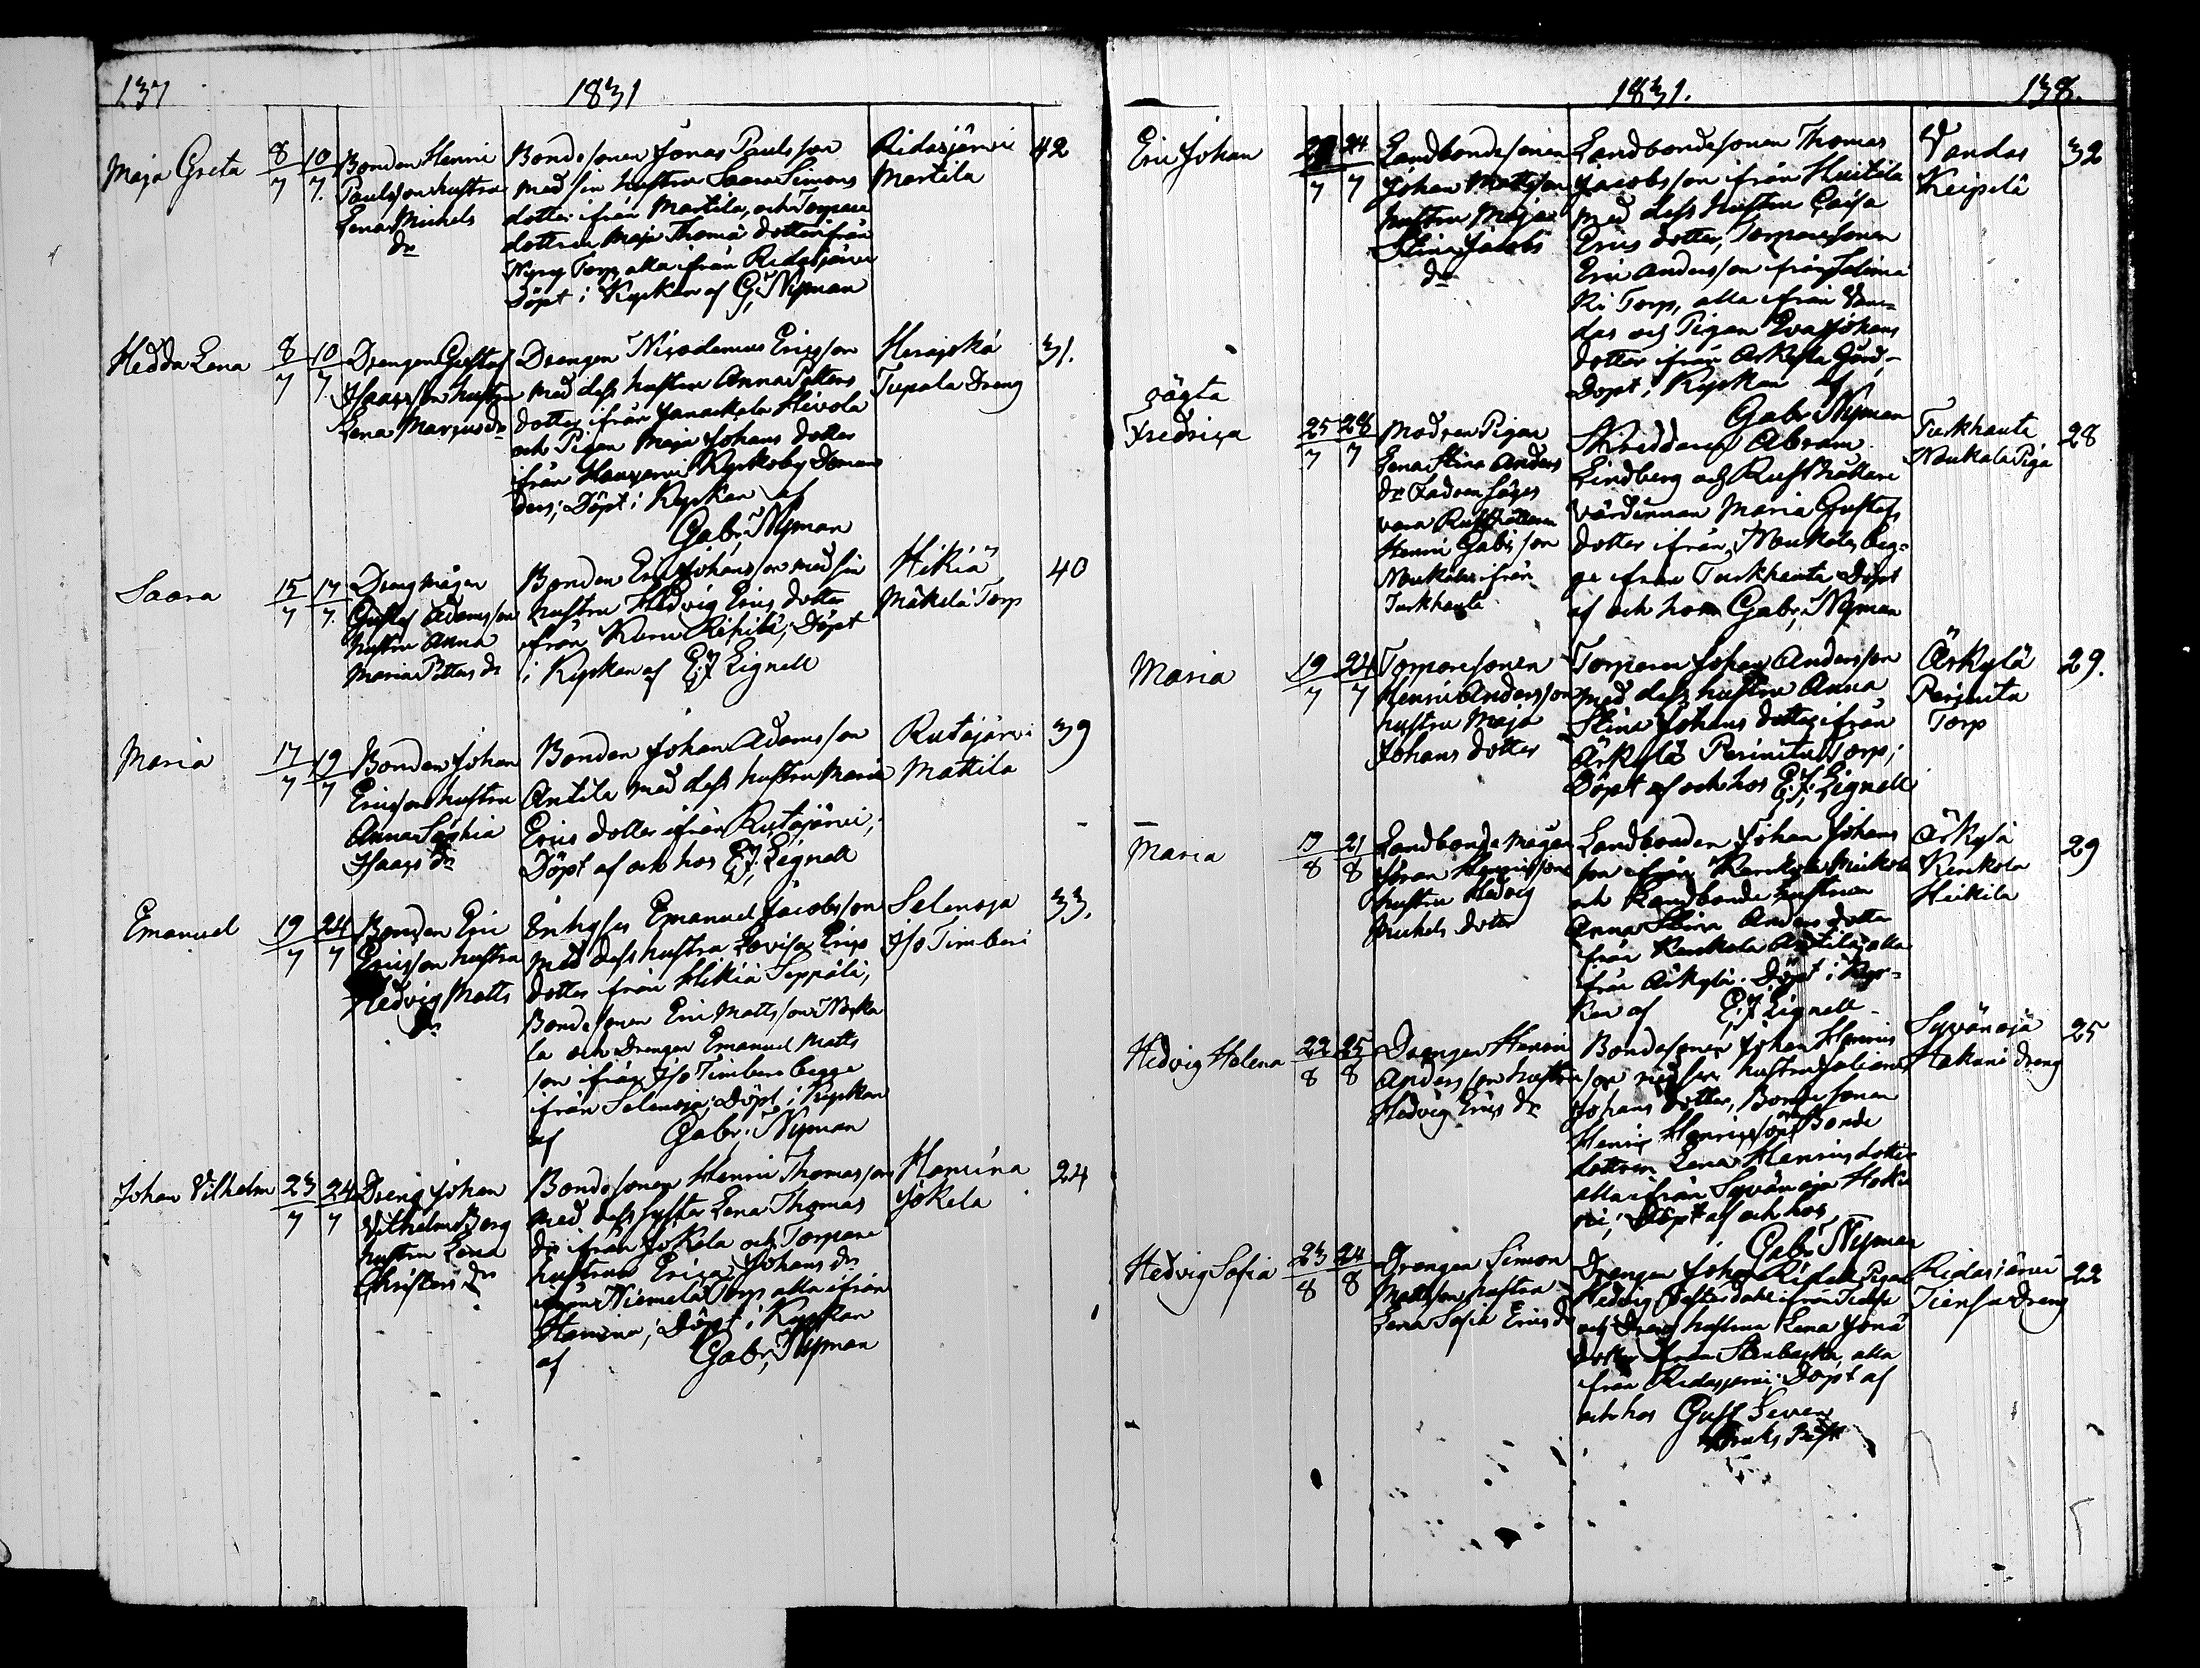 137
1831
Maja Greta
8/7
10/7.
Bonden Henric
Paulsson hustru
Lena Michels
dr
Bondesonen Jonas Paulsson
med sin hustru Saara Simons
dotter ifrån Martila, och Torpare
dottren Maja Thomä dotter ifrån
Torp, alla ifrån Ridasjärvi
Döpt i Kyrkan af G. Nyman
Ridasjärvi
Martila
42
Hedda Lena
8/7
10/7.
Drengen Gustaf
Isaacsson hustru
Lena Marcus dr
Drengen Nicodemus Ericsson
med dess hustru Anna Petters
dotter ifrån Janackala Hivola
och Pigan Maja Johans dotter
ifrån Hausjervi Kyrkoby
Döpt i Kyrkan af
Gabr. Nyman
Herajoki
Tupala Dreng
31.
Saara
15/7
17/7.
Dreng mågen
Gustaf Adamsson
hustru Anna
Maria Petters dr
Bonden Eric Johansson med sin
hustru Hedvig Erics dotter
ifrån Döpt
i Kyrkan af E.J. Lignell
Hikiä
Mäkelä Torp
40
Maria
17/7
19/7
Bonden Johan
Ericsson hustru
Anna Sophia
Isaacs dr
Bonden Johan Adamsson
Antila med dess hustru Maria
Erics dotter ifrån Rutajärvi,
Döpt af och hos E.J. Lignell
Rutajärvi
Mattila
39
Emanuel
19/7
24/7
Bonden Eric
Ericsson hustru
Hedvig Matts
dr
Enhyses Emanuel Jacobsson
med dess hustru Lovisa Erics
dotter från Hikiä Seppälä,
Bondesonen Eric Mattsson
la och Drengen Emanuel Matts
son ifrån Iso Timberi begge
ifrån Selenoja; Döpt i Kyrkan
af Gabr. Nyman
Selenoja
Iso Timberi
33.
Johan Vilhelm
23/7
24/7
Dreng Johan
Vilhelm Berg
hustru Lena
Christers dr
Bondesonen Henric Thomasson
med dess syster Lena Thomas
dr ifrån Jokela och Torpare
hustrun Erica Johans dr
ifrån Niemelä Torp alla ifrån
Hamina; Döpt i Kyrkan
af Gabr. Nyman
Hamina
Jokela
24
1831.
138.
Eric Johan
24/7
Landbondesonen
Johan Mattsson
hustru Maja
Stina Jacobs
dr
Landbondesonen Thomas
Jacobsson ifrån Huitila
med dess hustru Caisa
Erics dotter, Torparesonen
Eric Andersson ifrån
ki Torp, alla ifrån Van-
das och Pigan Eva Johans
dotter ifrån Gård,
Döpt i Kyrkan af
Gabr. Nyman
Vandas
Keipilä
32
oägta
Fredrica
25/7
28/7
Modren Pigan
Lena Stina Anders
dr Fadren säges
vara Rusthållaren
Henric Gabrs son
Moukala ifrån
Turkhauta
Skreddaren Abram
Lindberg och Rusthållare
värdinnan Maria Gustafs
dotter ifrån Moukala, beg-
ge ifrån Turkhauta Döpt
af och hos Gabr. Nyman
Turkhauta
Moukala Piga
28
Maria
19/7
24/7
Torparesonen
Henric Andersson
hustru Maja
Johans dotter
Torparen Johan Andersson
med dess hustru Anna
Stina Johans dotter ifrån
Ärkylä Perinitu Torp;
Döpt af och hos E.J. Lignell
Ärkylä
Perinitu
Torp
29.
Maria
17/8
21/8
Landbonde mågen
Jöran Henricsson
hustru Hedvig
Michels dotter
Landbonden Johan Johans
son ifrån Kenkola Mickola
och Landbonde hustrun
Anna Stina Anders dotter
från Kenkola Antila, alla
från Ärkylä. Döpt i Kyr-
kan af E.J. Lignell
Ärkylä
Kenkola
Heikila
29
Hedvig Helena
22/8
25/8
Drengen Henric
Andersson hustru
Hedvig Erics dr
Bondesonen Johan Henrics
son med sin hustru Juliana
Johans dotter, Bondesonen
Henric Henricsson Bonde
dottren Lena Henrics dotter
alla ifrån Syvänoja Haka
ni; Döpt af och hos
Gabr. Nyman
Syvänoja
Hakani Dreng
25
Hedvig Sofia
23/8
24/8
Drengen Simon
Mattsson hustru
Lena Sofia Erics dr
Drengen Johan Pigan
Hedvig ifrån Tiensu
och Dreng hustrun Lena Jonä
dotter ifrån Stenbacka, alla
ifrån Ridasjervi. Döpt af
och hos Gust.
Ridasjärvi
Tiensu Dreng
22